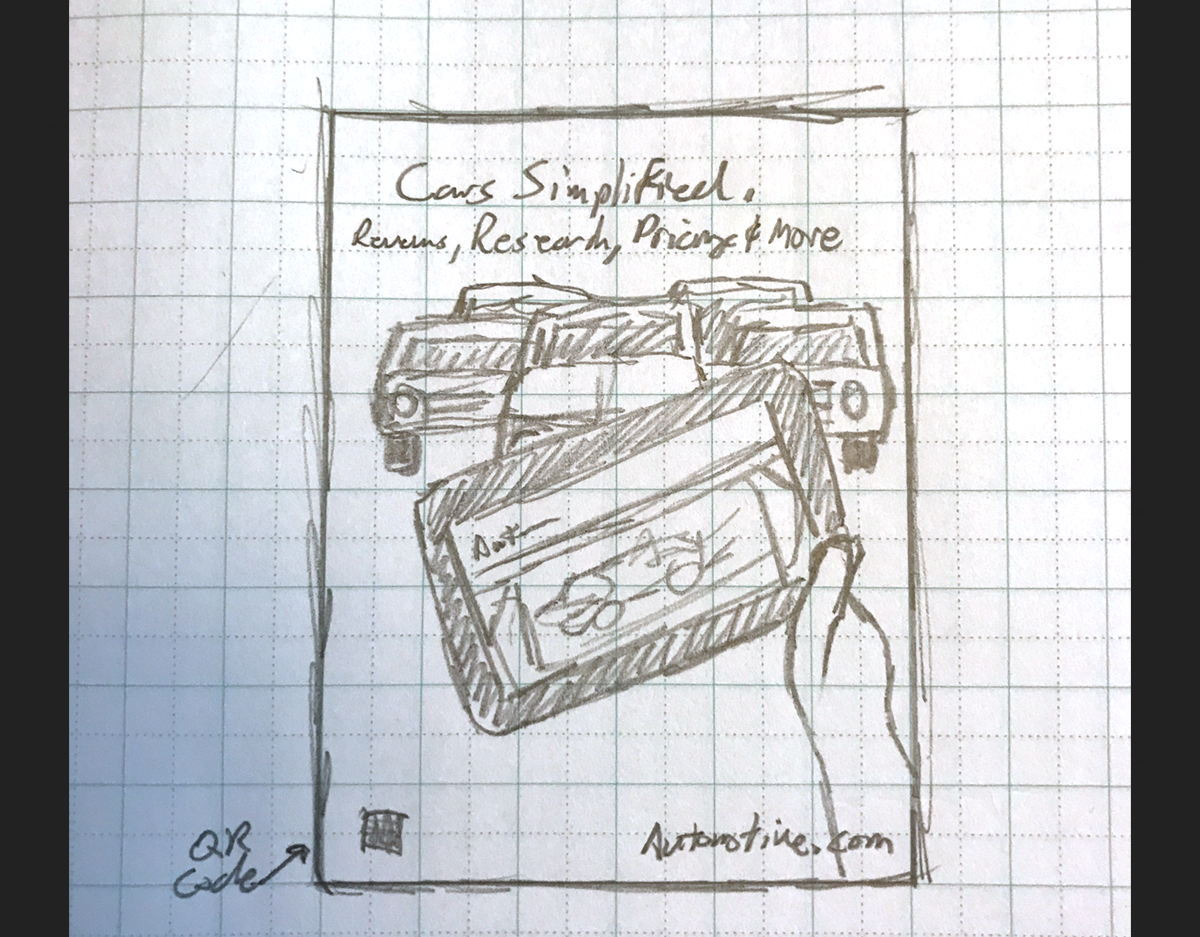 Cars Simplified.
Reviews, Research, Pricing & More
Aut
QR
Code
Automotive.com